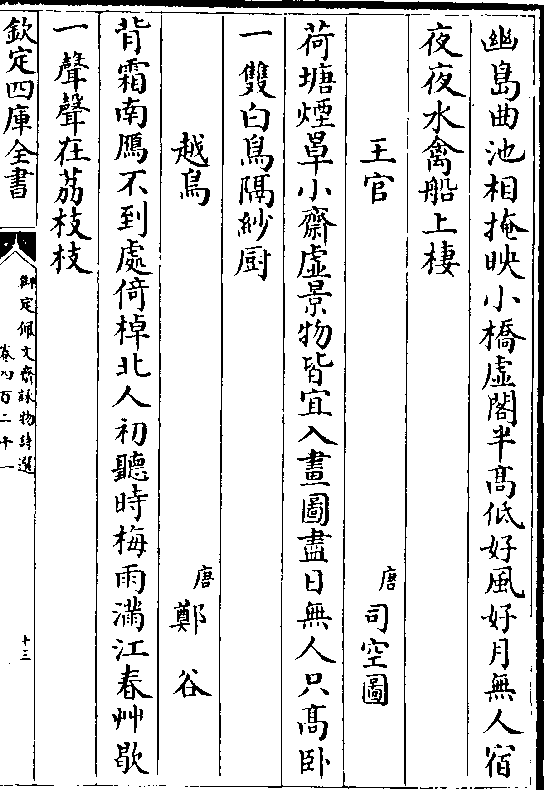 幽島曲池相掩映小橋虛閣半髙低好風好月無人宿
夜夜水禽船上棲
王官　唐　司空圖
荷塘煙罩小齋虛景物皆宜入畫圖盡日無人只髙卧
一雙白鳥隔紗厨
越鳥　唐　鄭谷
背霜南鴈不到處倚棹北人初聽時梅雨滿江春艸歇
一聲聲在荔枝枝
欽定四庫全書
御定佩文齋詠物詩選
卷四百二十一
十三